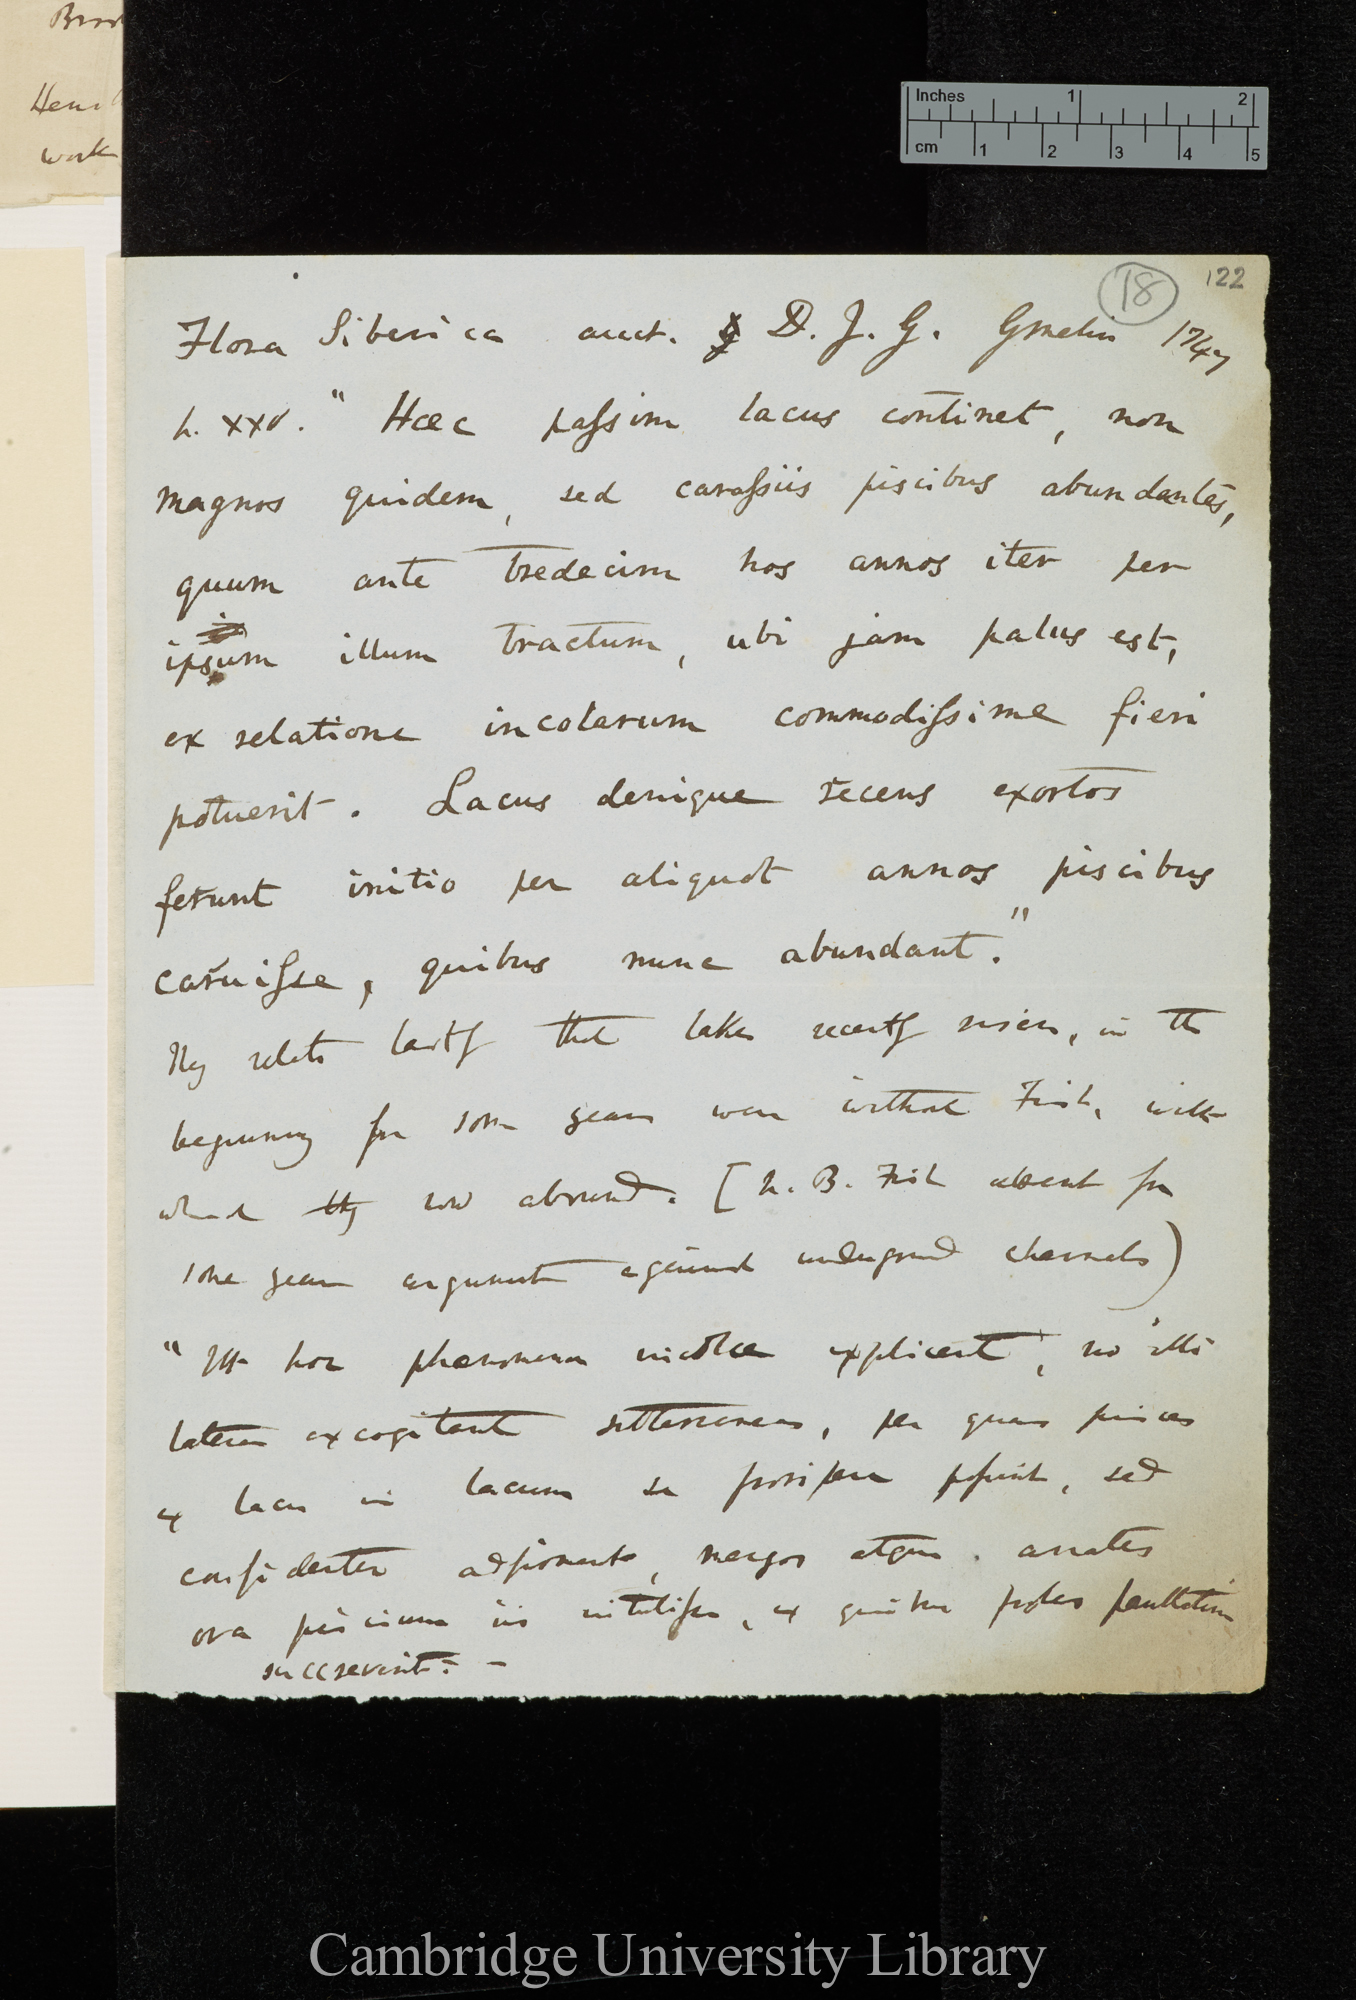 Brow
Hens
work
Inches 1 2
cm 1 2 3 4 5
18 122
Flora Siberica auct. D. J. G. Gmelin 1747
p. XXV. "Haec passim lacus continet, non
magnos quidem, sed carassiis piscibus abundantes,
quum ante tredecim hos annos iter per
ipsum illum tractum, ubi jam palus est,
ex relatione incolarum commodissime fieri
potuerit. Lacus denique recens exortos
ferunt initio per aliquot annos piscibus
caruisse, quibus nunc abundant."
They relate lastly that lakes recently risen, in the
beginning for some years were without Fish, with
which they now abound. [N. B. Fish absent for
some years argument against underground channels)
"Ut hoc phenomenon incolae explicent, no illi
lateres excogitant subterraneas, per quas pisces
ex lacu in lacum se proripere possint, sed
confidenter adfirmant, mergos atque anates
ova piscium iis intulisse, ex quibus proles paullatim
succreverit. -
Cambridge University Library